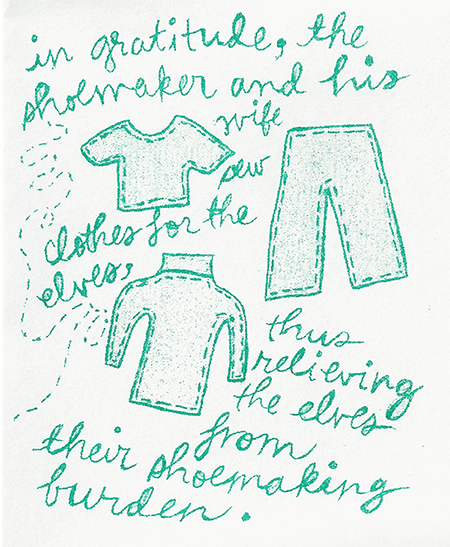 in gratitude, the
shoemaker and his
wife
sew
clothes for the
elves,
thus
relieving
the elves
from
their shoemaking
burden.